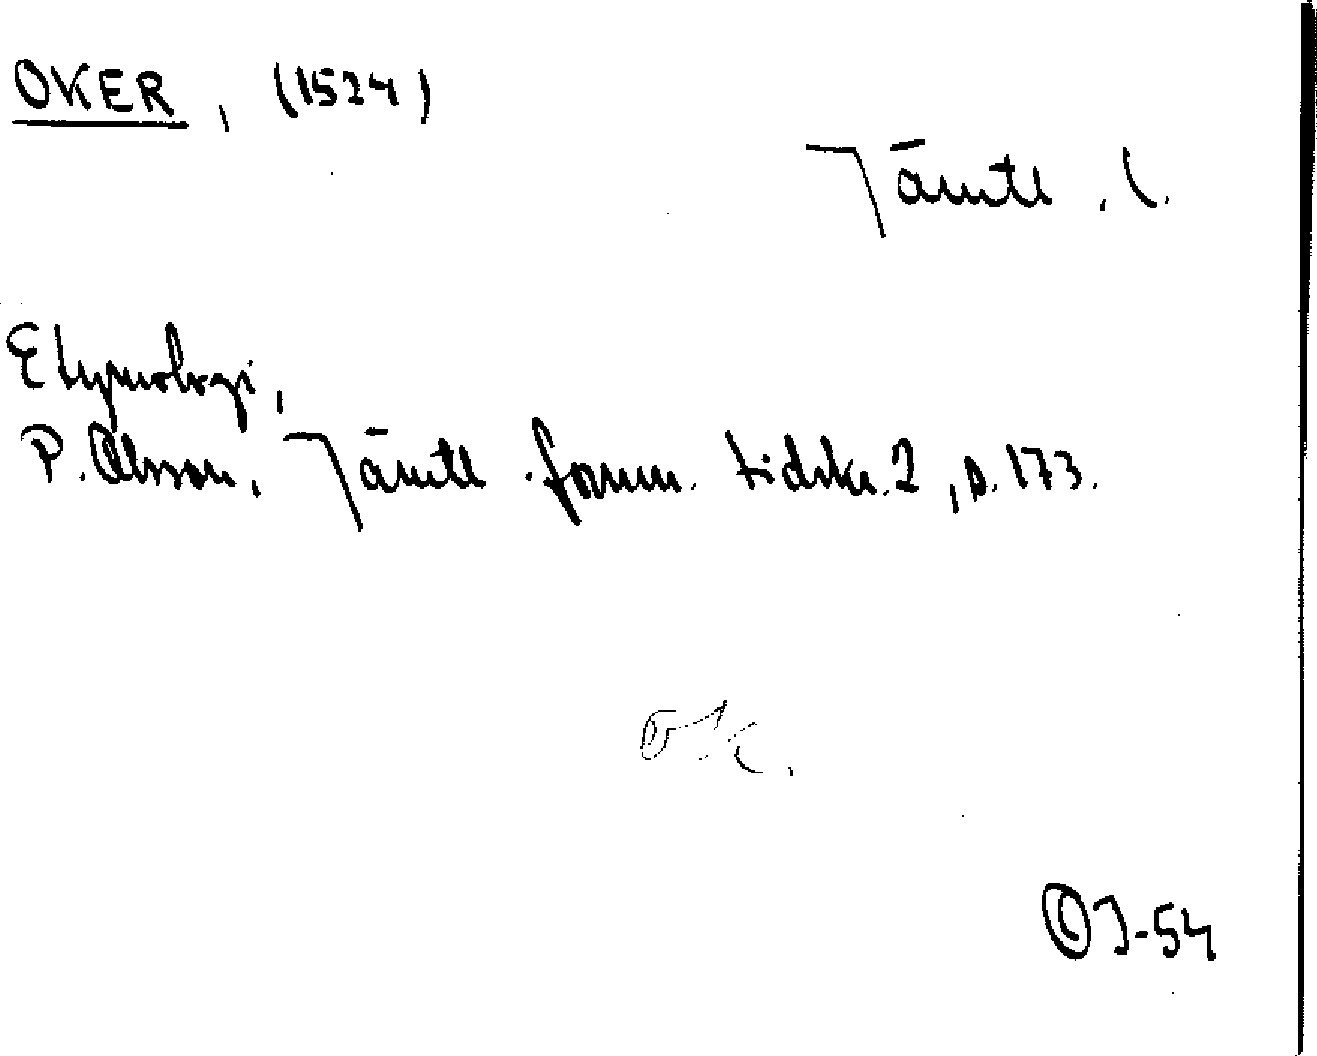 OKER, (1524)
Jämtl. l.
Etymologi,
P. Olsson, Jämtl. fornm. tidskr. 2, s. 173.
O.K.
©J-54